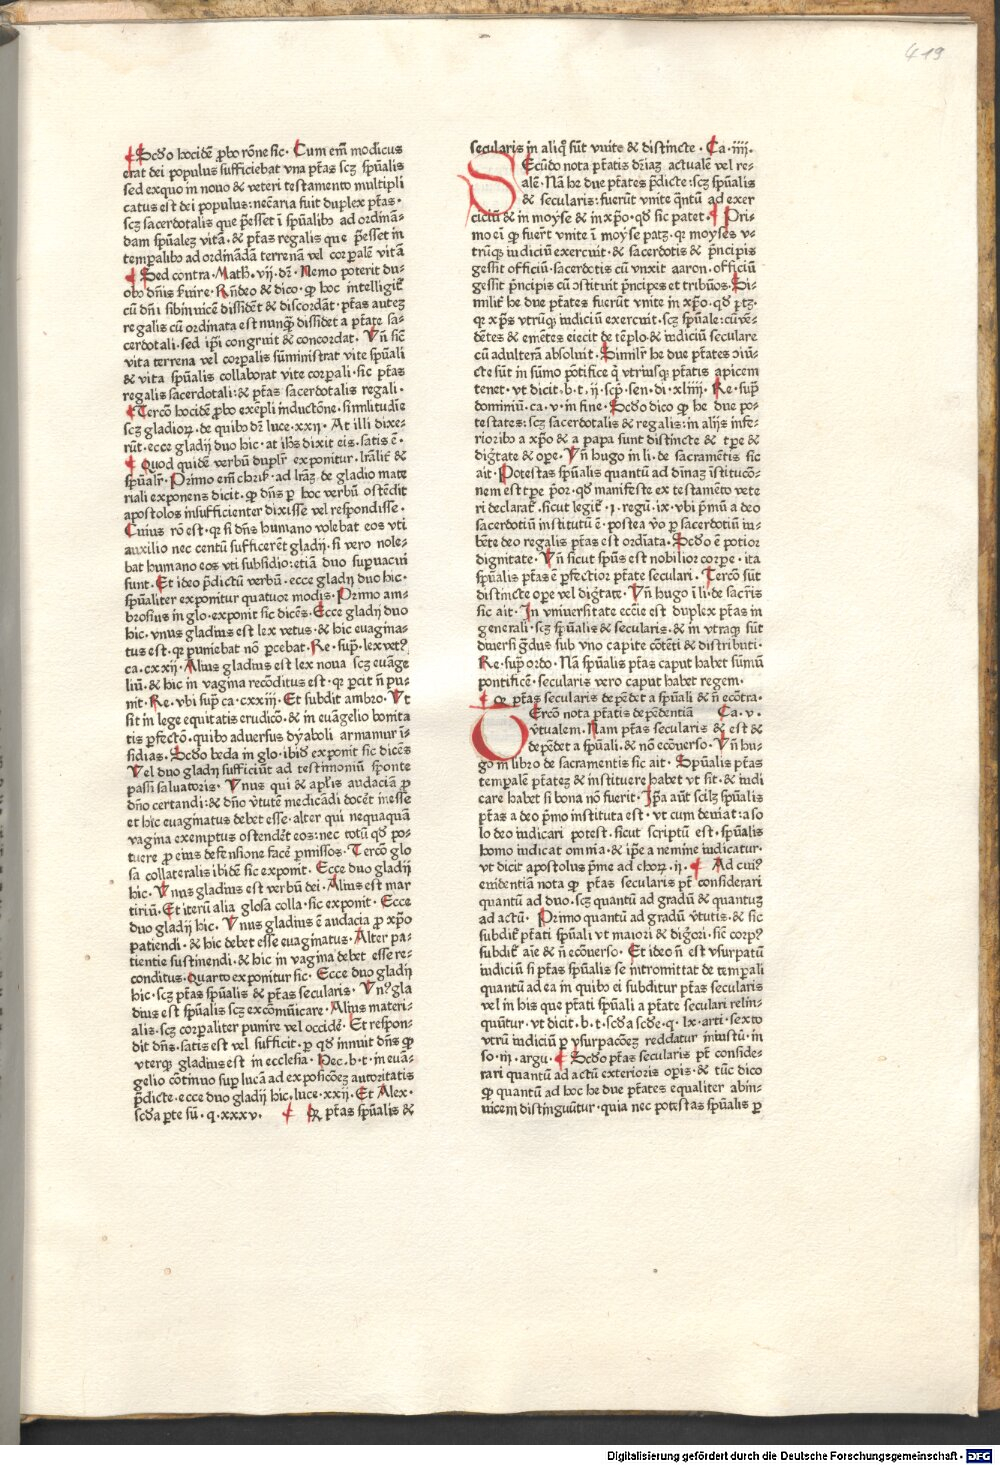 419
¶ Scďo hocidē ꝓbo rōne sic · Cum em̄ modicus
erat dei populus sufficiebat vna ptās scꝫ spūalis
sed exquo in nouo & veteri testamento multipli
catus est dei populus : necāria fuit duplex ptās ·
scꝫ sacerdotalis que p̄esset ī spūalibꝰ ad ordinā-
dam spūalez vitā · & ptās regalis que p̄esset in
temp̱alibꝰ ad ordināda terrenā vel corp̱alē vitā
¶ Sed contra · Math · vij · dr̄ · Nemo poterit du-
obꝰ dn̄is ẜuire · Rn̄deo & dico · ꝙ hoc intelligit̄
cū dn̄i sibinuicē dissidēt & discordāt · ptās autez
regalis cū ordinata est nunq̄ꝫ dissidet a ptāte sa-
cerdotali · sed ip̄i congruit & concordat · Vn̄ sic̄
vita terrena vel corp̱alis sūministrat vite spūali
& vita spūalis collaborat vite corp̱ali · sic ptās
regalis sacerdotali : & ptās sacerdotalis regali ·
¶ Tercō hocidē ꝓbo exēpli inductōne · similitudīe
scꝫ gladioꝝ · de quibꝰ dr̄ luce · xxij · At illi dixe-
rūt · ecce gladij duo hic · at ih̄s dixit eis · satis ē ·
¶ Quod quidē verbū duplr̄ exponitur · lr̄alit̄ &
spūalr̄ · Primo em̄ · ad lr̄aꝫ · de gladio mate
riali exponens dicit · ꝙ dn̄s ꝑ hoc verbū ostēdit
apostolos insufficienter dixisse vel respondisse ·
Cuius rō est · qꝛ si dn̄s humano volebat eos vti
auxilio nec centū sufficerēt gladij · si vero nole-
bat humano eos vti subsidio : etiā duo suꝑuacui
sunt · Et ideo p̄dictū verbū · ecce gladij duo hic ·
spūaliter exponitur quatuor modis · Primo am-
brosius in glo · exponit sic dicēs · Ecce gladij duo
hic · vnus gladius est lex vetus · & hic euagina-
tus est · qꝛ puniebat nō ꝑcebat · Re · sup̄ · lex vetꝰ
ca · cxxij · Alius gladius est lex noua scꝫ euāge
liū · & hic in vagina recōditus est · qꝛ ꝑcit n̄ pu-
nit · Re · vbi sup̄ ca · cxxiij · Et subdit ambro · Vt
sit in lege equitatis erudicō · & in euāgelio bonita
tis ꝑfectō · quibꝰ aduersus dyaboli armamur ī-
sidias · Scďo beda in glo · ibiď exponit sic dicēs
Vel duo gladij sufficiūt ad testimoniū sponte
passi saluatoris · Vnus qui & apl̄is audaciā ꝓ
dn̄o certandi : & dn̄o v̄tutē medicādi docēt inesse
et hic euaginatus debet esse · alter qui nequaquā
vagina exemptus ostendēt eos : nec totū qd̄ po-
tuere ꝓ eius defensione facē ꝑmissos · Tercō glo
sa collateralis ibidē sic exponit · Ecce duo gladij
hic · Vnus gladius est verbū dei · Alius est mar
tiriū · Et iterū alia glosa colla · sic exponit · Ecce
duo gladij hic · Vnus gladius ē audacia ꝓ xp̄o
patiendi · & hic debet esse euaginatus · Alter pa-
tientie sustinendi · & hic in vagina debet esse re-
conditus · Quarto exponitur sic · Ecce duo gladij
hic · scꝫ ptās spūalis & ptās secularis · Vnꝰ gla
dius est spūalis scꝫ excōmūicare · Alius materi-
alis · scꝫ corp̱aliter punire vel occidē · Et respon-
dit dn̄s · satis est vel sufficit · ꝑ qd̄ innuit dn̄s ꝙ
vterqꝫ gladius est in ecclesia · Hec · b · t · in euā-
gelio cōtinuo suꝑ lucā ad exposicōeꝫ autoritatis
p̄dicte · ecce duo gladij hic · luce · xxij · Et Alex ·
scďa ꝑte sū · q · xxxv · ¶ Qꝛ ptās spūalis &
secularis in aliqͥ sūt vnite & distincte · Ca · iiij ·
SEcūdo nota ptātis dr̄iaꝫ actualē vel re-
alē · Nā he due ptātes p̄dicte : scꝫ spūalis
& secularis : fuerūt vnite qͣntū ad exer
ciciū & in moyse & in xp̄o · qd̄ sic patet · ¶ Pri-
mo ei ꝙ fuerūt vnite ī moyse patꝫ · qꝛ moyses v-
trūqꝫ iudiciū exercuit · & sacerdotis & p̄ncipis
gessit officiū · sacerdotis cū vnxit aaron · officiū
gessit p̄ncipis cū ↄstituit p̄ncipes et tribūos · Si-
milit̄ he due ptātes fuerūt vnite in xp̄o · qd̄ ptꝫ ·
qꝛ xp̄s vtrūqꝫ iudiciū exercuit · scꝫ spūale : cū vē-
dētes & emētes eiecit de tēplo · & iudiciū seculare
cū adulterā absoluit · Similr̄ he due ptātes ↄiū-
cte sūt in sūmo pōtifice qͥ vtriusqꝫ ptātis apicem
tenet · vt dicit · b · t · ij · scp̄ · sen · di · xliiij · Re · sup̄
dominiū · ca · v · in fine · Scďo dico ꝙ he due po-
testates : scꝫ sacerdotalis & regalis : in alijs infe-
rioribꝰ a xp̄o & a papa sunt distincte & tꝑe &
dignitate & oꝑe · Vn̄ hugo in li · de sacramētis sic
ait · Potestas spūalis quantū ad diuinaꝫ īstitucō-
nem est tꝑe p̄or · qd̄ manifeste ex testamēto vete
ri declarat̄ · sicut legit̄ · j · regū · ix · vbi p̄mū a deo
sacerdotiū institutū ē · postea v̄o ꝑ sacerdotiū iu-
bēte deo regalis ptās est ordīata · Scďo ē potior
dignitate · Vn̄ sicut spūs est nobilior corꝑe · ita
spūalis ptās ē ꝑfectior ptāte seculari · Tercō sūt
distincte oꝑe vel dig̅tate · Vn̄ hugo ī li · de sacr̄is
sic ait · In vniuersitate eccīe est duplex ptās in
generali · scꝫ spūalis & secularis · & in vtraqꝫ sūt
diuersi gͣdus sub vno capite cōtēti & distributi ·
Re · sup̄ ordo · Nā spūalis ptās caput habet sūmū
pontificē · secularis vero caput habet regem ·
¶ Qꝛ ptās secularis depēdet a spūali & n̄ ecōtra ·
TErcō nota ptātis depēdentiā Ca · v ·
v̄tualem · Nam ptās secularis & est &
depēdet a spūali · & nō ecōuerso · Vn̄ hu-
go in libro de sacramentis sic ait · Spūalis ptās
temp̱alē ptāteꝫ & instituere habet vt sit · & iudi
care habet si bona nō fuerit · Ip̄a aūt scilꝫ spūalis
ptās a deo p̄mo instituta est · vt cum deuiat : a so
lo deo iudicari potest · sicut scriptū est · spūalis
homo iudicat omnia · & ip̄e a nemine iudicatur ·
vt dicit apostolus p̄me ad choꝝ · ij · ¶ Ad cuiꝰ
euidentiā nota ꝙ ptās secularis pt̄ considerari
quantū ad duo · scꝫ quantū ad gradū & quantuꝫ
ad actū · Primo quantū ad gradū v̄tutis · & sic
subdit̄ ptāti spūali vt maiori & dig̅ori · sic̄ corpꝰ
subdit̄ aīe & n̄ ecōuerso · Et ideo n̄ est vsurpatū
iudiciū si ptās spūalis se intromittat de temp̱ali
quantū ad ea in quibꝰ ei subditur ptās secularis
vel in his que ptāti spūali a ptāte seculari relin-
quūtur · vt dicit · b · t · scďa scďe · q · lx · arti · sexto
vtrū iudiciū ꝑ vsurpacōeꝫ reddatur iniustū · in
so · iij · argu · ¶ Scďo ptās secularis pt̄ conside-
rari quantū ad actū exterioris oꝑis · & tūc dico
ꝙ quantū ad hoc he due ptātes equaliter abin-
uicem distinguūtur · quia nec potestas spūalis ꝑ
Digitalisierung gefördert durch die Deutsche Forschungsgemeinschaft - DFG